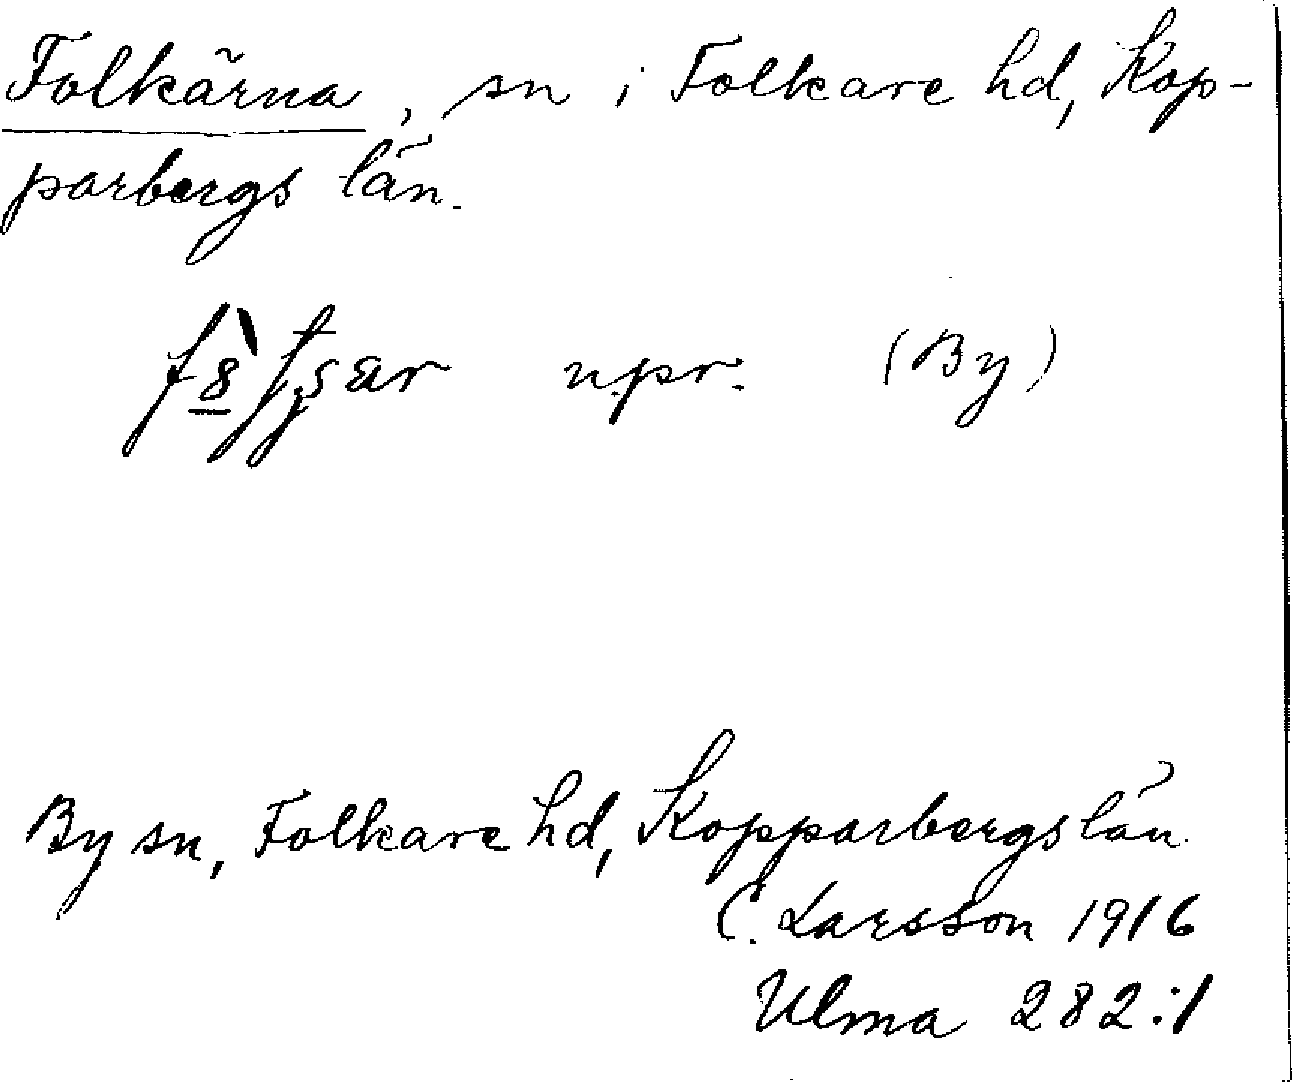 Folkärna, sn i Folkare hd, Kop-
parbergs län.
upr. (By)
By sn, Folkare hd, Kopparbergs län.
C. Larsson 1916
Ulma 282:1